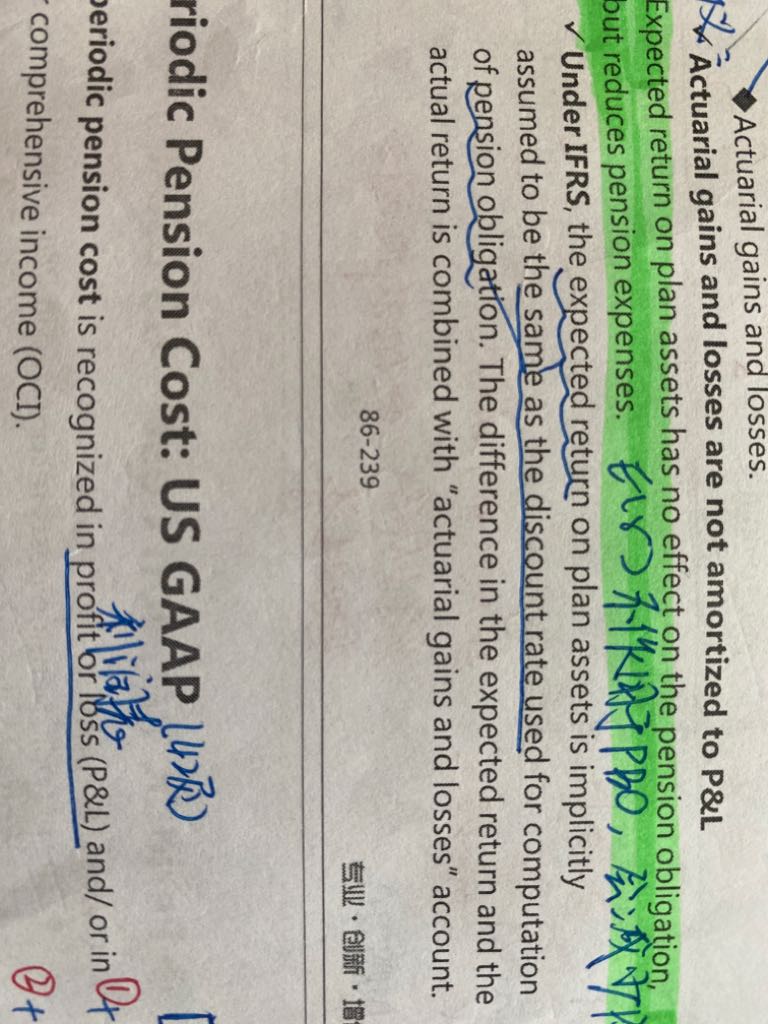 ◆ Actuarial gains and losses.
✓ Actuarial gains and losses are not amortized to P&L
Expected return on plan assets has no effect on the pension obligation,
but reduces pension expenses.
PBO,
✓ Under IFRS, the expected return on plan assets is implicitly
assumed to be the same as the discount rate used for computation
of pension obligation. The difference in the expected return and the
actual return is combined with "actuarial gains and losses" account.
86-239
专业·创新·增
riodic Pension Cost: US GAAP
利润表
periodic pension cost is recognized in profit or loss (P&L) and/ or in ①+
comprehensive income (OCI). ②+